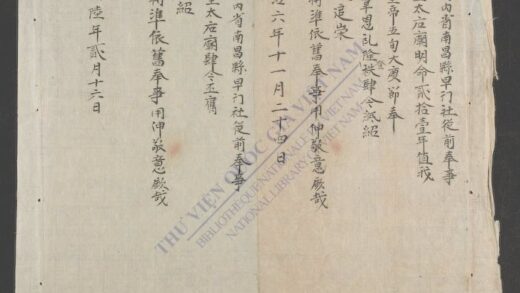 內省南昌縣早汀社從前奉事
太后廟明命貳拾壹年值我
皇帝五旬大慶節奉
覃恩礼隆登秩肆今祇紹
追崇
將準依舊奉事用伸敬意厥哉
治六年十一月二十四日
內省南昌縣早汀社從前奉事
皇太后廟肆今丕膺
紹
將準依舊奉事用伸敬意厥哉
陸年貳月十六日
THƯ VIỆN QUỐC GIA VIỆT NAM
BIBLIOTHEQUE NATIONALE DU VIETNAM
NATIONAL LIBRARY OF VIETNAM